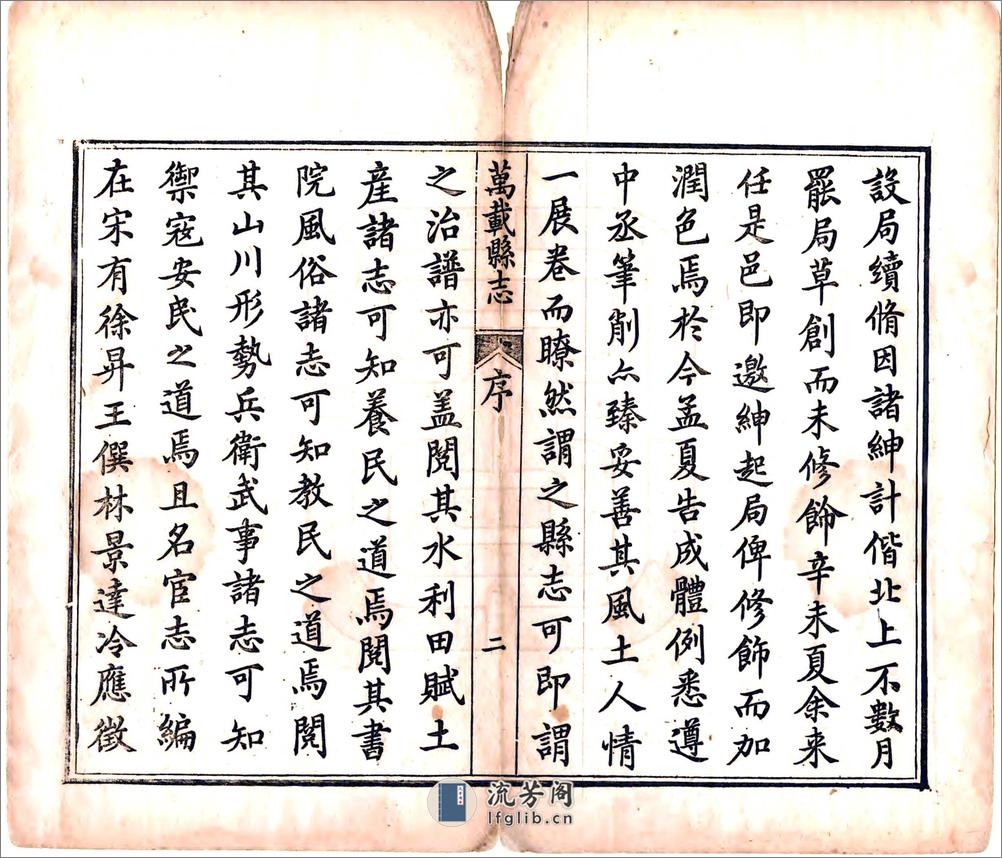 設局續脩因諸紳計偕北上不數月
罷局草創而未修飾辛未夏余来
任是邑即邀紳起局俾修飾而加
潤色焉於今孟夏告成體例悉遵
中丞筆削亦臻妥善其風土人情
一展卷而瞭然謂之縣志可即謂
萬載縣志
序
二
之治譜亦可盖閱其水利田賦土
産諸志可知養民之道焉閱其書
院風俗諸志可知教民之道焉閱
其山川形勢兵衛武事諸志可知
禦寇安民之道焉且名宦志所編
在宋有徐昇王僎林景達冷應徵
流芳阁
lfglib.cn